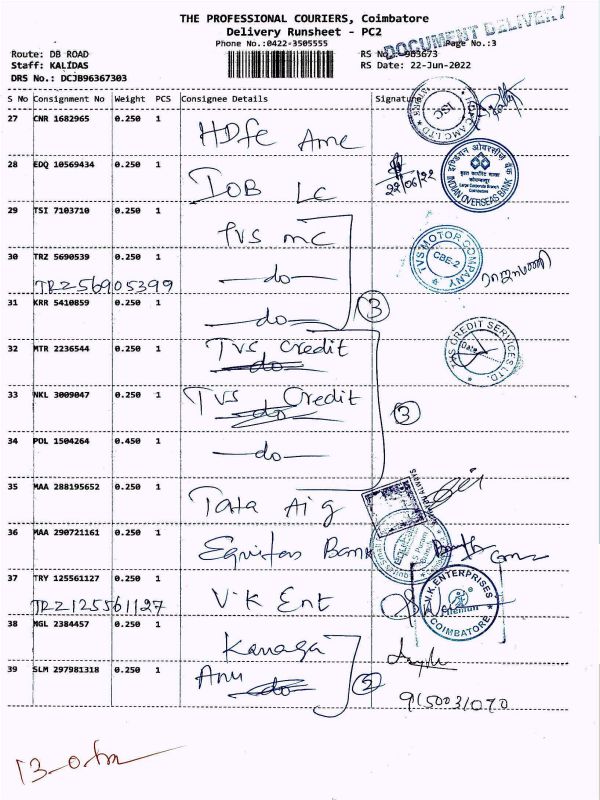 THE PROFESSIONAL COURIERS, Coimbatore
Delivery Runsheet - PC2
DOCUMENT DELIVERY
Phone No.:0422-3505555
Page No.:3
Route: DB ROAD
RS No.: 963673
Staff: KALIDAS
RS Date: 22-Jun-2022
DRS No.: DCJB96367303
S No Consignment No Weight PCS Consignee Details Signature
27 CNR 1682965 0.250 1 HDFC AMC
28 EDQ 10569434 0.250 1 IOB LC
22/06/22
INDIAN OVERSEAS BANK
29 TSI 7103710 0.250 1 TVS MC
30 TRZ 5690539 0.250 1 —do—
TRZ56905399
TVS MOTOR COMPANY
CBE-2
31 KRR 5410859 0.250 1 —do—
3
32 MTR 2236544 0.250 1 TVS Credit
do
TVS CREDIT SERVICES LTD.
Date
33 NKL 3009047 0.250 1 TVS Credit
do
3
34 POL 1504264 0.450 1 —do—
35 MAA 288195652 0.250 1 Tata Aig
36 MAA 290721161 0.250 1 Equitas Bank
37 TRY 125561127 0.250 1 V.K Ent
TRZ125561127
V.K.ENTERPRISES
COIMBATORE
38 MGL 2384457 0.250 1 Kanaga
39 SLM 297981318 0.250 1 Anu
do
2
9150031070